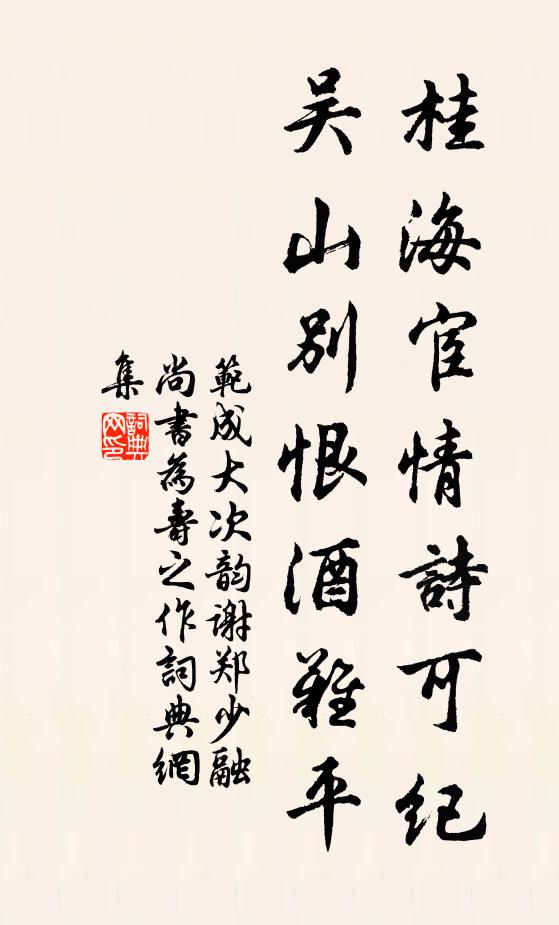 桂海宦情詩可紀
吴山别恨酒難平
範成大次韵谢郑少融
尚書為壽之作詞典網
集
詞典
网印